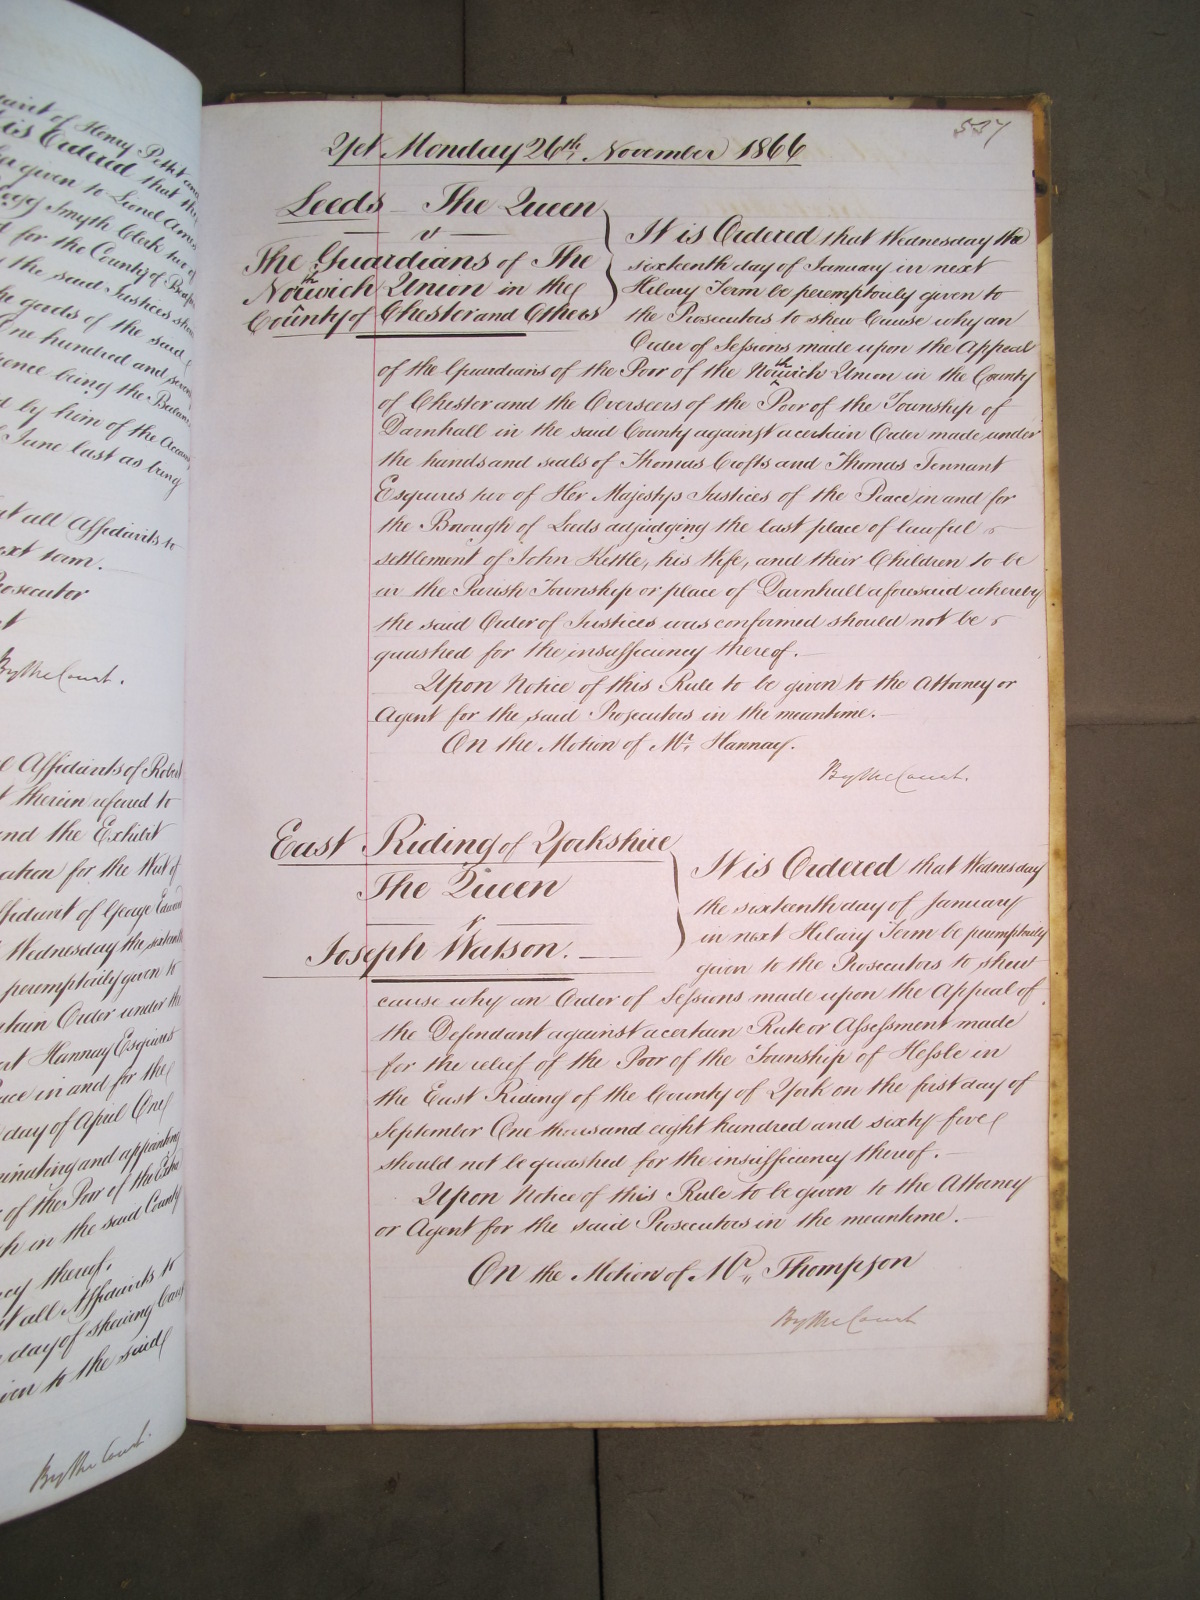 537
Yet Monday 26th, November 1866
Leeds The Queen
v
The Guardians of The
Northwich Union in the
County of Chester and Others
It is Ordered that Wednesday the
sixteenth day of January in next
Hilary Term be peremptorily given to
the Prosecutors to shew Cause why an
Order of Sessions made upon the Appeal
of the Guardians of the Poor of the Northwich Union in the County
of Chester and the Overseers of the Poor of the Township of
Darnhall in the said County against a certain Order made under
the hands and seals of Thomas Crofts and Thomas Tennant
Esquires two of Her Majestys Justices of the Peace in and for
the Borough of Leeds adjudging the last place of lawful
settlement of John Kettle, his Wife, and their Children to be
in the Parish Township or place of Darnhall aforesaid whereby
the said Order of Justices was confirmed should not be
quashed for the insufficiency thereof.
Upon Notice of this Rule to be given to the Attorney or
Agent for the said Prosecutors in the meantime.
On the Motion of Mr. Hannay.
By the Court.
East Riding of Yorkshire
The Queen
v.
Joseph Watson.
It is Ordered that Wednesday
the sixteenth day of January
in next Hilary Term be peremptorily
given to the Prosecutors to shew
cause why an Order of Sessions made upon the Appeal of
the Defendant against a certain Rate or Assessment made
for the relief of the Poor of the Township of Hessle in
the East Riding of the County of York on the first day of
September One thousand eight hundred and sixty five
should not be quashed for the insufficiency thereof.
Upon Notice of this Rule to be given to the Attorney
or Agent for the said Prosecutors in the meantime.
On the Motion of Mr,, Thompson
By the Court
of Henry
is Ordered that
given to Lionel
Smyth Clerk two of
for the County of
the said Justices
the goods of the said
One hundred and
being the
by him of the
June last as being
all Affidavits to
next term.
Prosecutor
By the Court.
Affidavits of Robert
therein referred to
and the Exhibit
for the Writ of
Affidavit of George
Wednesday the
peremptorily given to
Order under the
Hannay Esquires
Peace in and for the
day of April One
and appointing
of the Poor of the
in the said County
thereof.
all Affidavits to
day of shewing
to the said
By the Court.